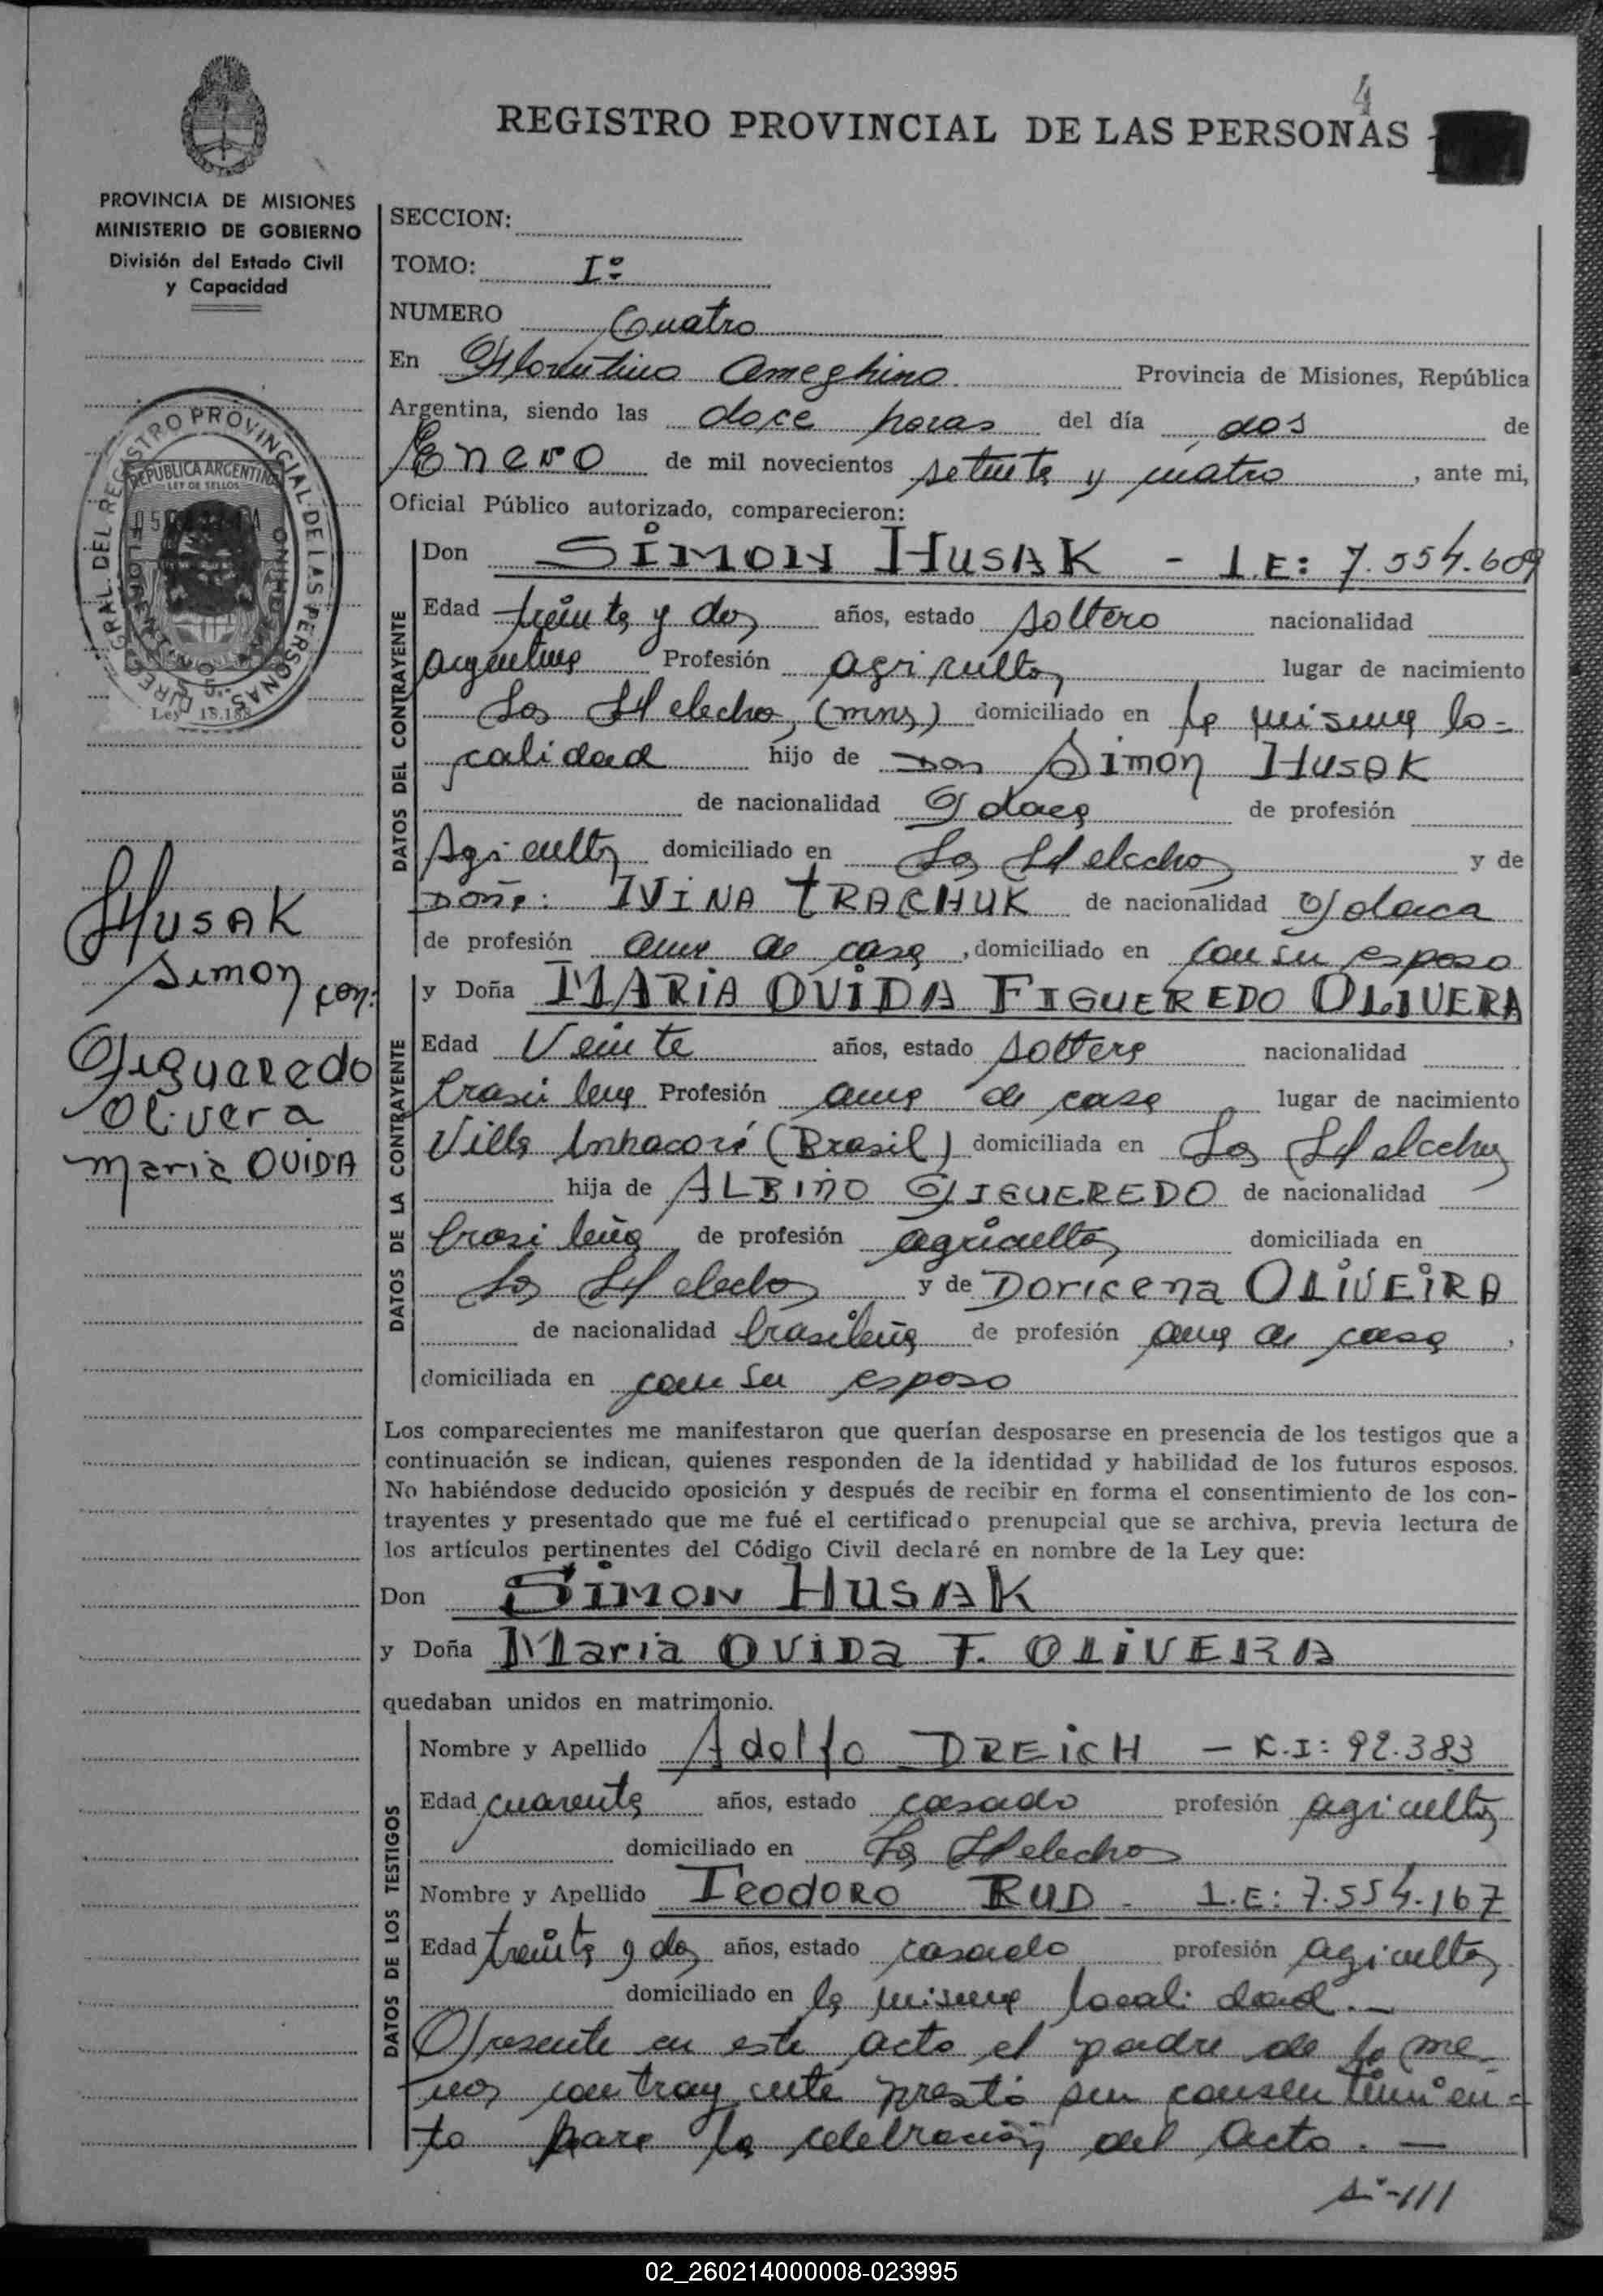 4
REGISTRO PROVINCIAL DE LAS PERSONAS
PROVINCIA DE MISIONES
MINISTERIO DE GOBIERNO
División del Estado Civil
y Capacidad
GRAL. DEL REGISTRO PROVINCIAL DE LAS PERSONAS
REPUBLICA ARGENTINA
LEY DE SELLOS
Ley 18.188
HUSAK
Simon con:
Figueredo
Olivera
Maria OVIDA
SECCION:
TOMO: Iº
NUMERO Cuatro
En Florentino Ameghino Provincia de Misiones, República
Argentina, siendo las doce horas del día dos de
Enero de mil novecientos setenta y cuatro, ante mi,
Oficial Público autorizado, comparecieron:
DATOS DEL CONTRAYENTE
Don SIMON HUSAK - L.E: 7.554.609
Edad treinta y dos años, estado soltero nacionalidad
argentina Profesión agricultor lugar de nacimiento
Los Helechos, (mns) domiciliado en la misma lo=
calidad hijo de Don Simón HUSAK
de nacionalidad Polaca de profesión
Agricultor domiciliado en Los Helechos y de
Doña: IVINA TRACHUK de nacionalidad Polaca
de profesión ama de casa, domiciliado en con su esposo
DATOS DE LA CONTRAYENTE
y Doña MARIA OVIDA FIGUEREDO OLIVERA
Edad Veinte años, estado soltera nacionalidad
brasileña Profesión ama de casa, lugar de nacimiento
Villa Inhacorá (Brasil) domiciliada en Los Helechos
hija de ALBINO FIGUEREDO de nacionalidad
brasileña de profesión agricultor domiciliada en
Los Helechos y de Doricena OLIVEIRA
de nacionalidad brasileña de profesión ama de casa,
domiciliada en con su esposo
Los comparecientes me manifestaron que querían desposarse en presencia de los testigos que a
continuación se indican, quienes responden de la identidad y habilidad de los futuros esposos.
No habiéndose deducido oposición y después de recibir en forma el consentimiento de los con-
trayentes y presentado que me fué el certificado prenupcial que se archiva, previa lectura de
los artículos pertinentes del Código Civil declaré en nombre de la Ley que:
Don SIMON HUSAK
y Doña Maria OVIDA F. OLIVEIRA
quedaban unidos en matrimonio.
DATOS DE LOS TESTIGOS
Nombre y Apellido Adolfo DREICH - C.I: 92.383
Edad cuarenta años, estado casado profesión agricultor
domiciliado en Los Helechos
Nombre y Apellido Teodoro RUD - L.E: 7.554.167
Edad treinta y dos años, estado casado profesión agricultor
domiciliado en la misma localidad.-
Presente en este acto el padre de la me-
nor contrayente prestó su consentimien=
to para la celebración del acto. -
02_260214000008-023995